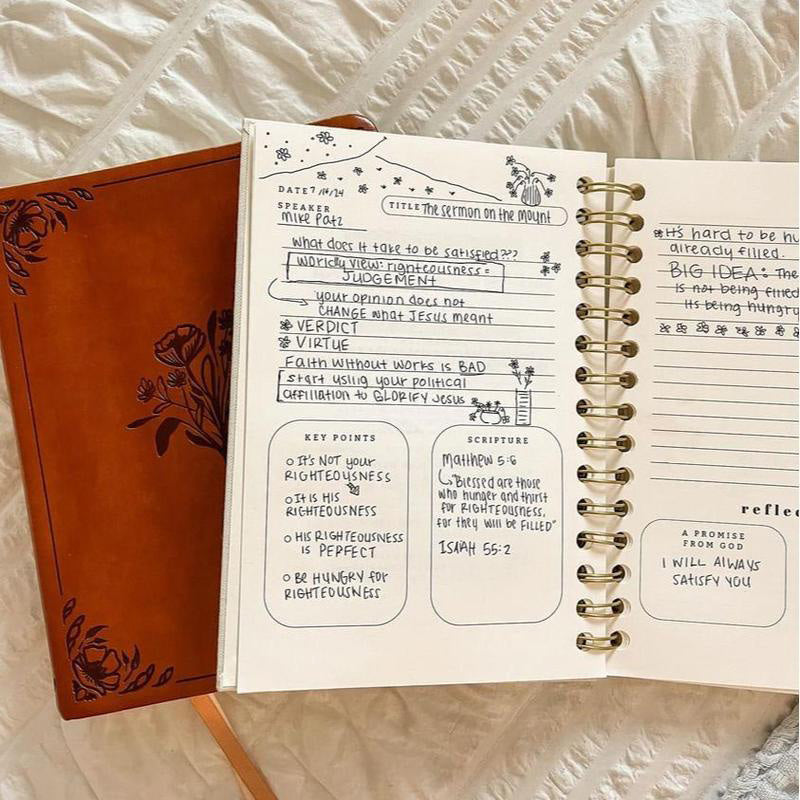 DATE 7/14/24
SPEAKER
Mike Patz
TITLE The sermon on the mount
What does it take to be satisfied???
worldly view: righteousness =
JUDGEMENT
your opinion does not
CHANGE what Jesus meant
VERDICT
VIRTUE
Faith without works is BAD
start using your political
affiliation to GLORIFY Jesus
KEY POINTS
It's NOT your
RIGHTEOUSNESS
It is HIS
RIGHTEOUSNESS
HIS RIGHTEOUSNESS
IS PERFECT
Be HUNGRY for
RIGHTEOUSNESS
SCRIPTURE
Matthew 5:6
"Blessed are those
who hunger and thirst
for RIGHTEOUSNESS,
for they will be FILLED"
ISAIAH 55:2
It's hard to be hu
already filled.
BIG IDEA: The
is not being filled
its being hungry
reflec
A PROMISE
FROM GOD
I WILL ALWAYS
SATISFY YOU